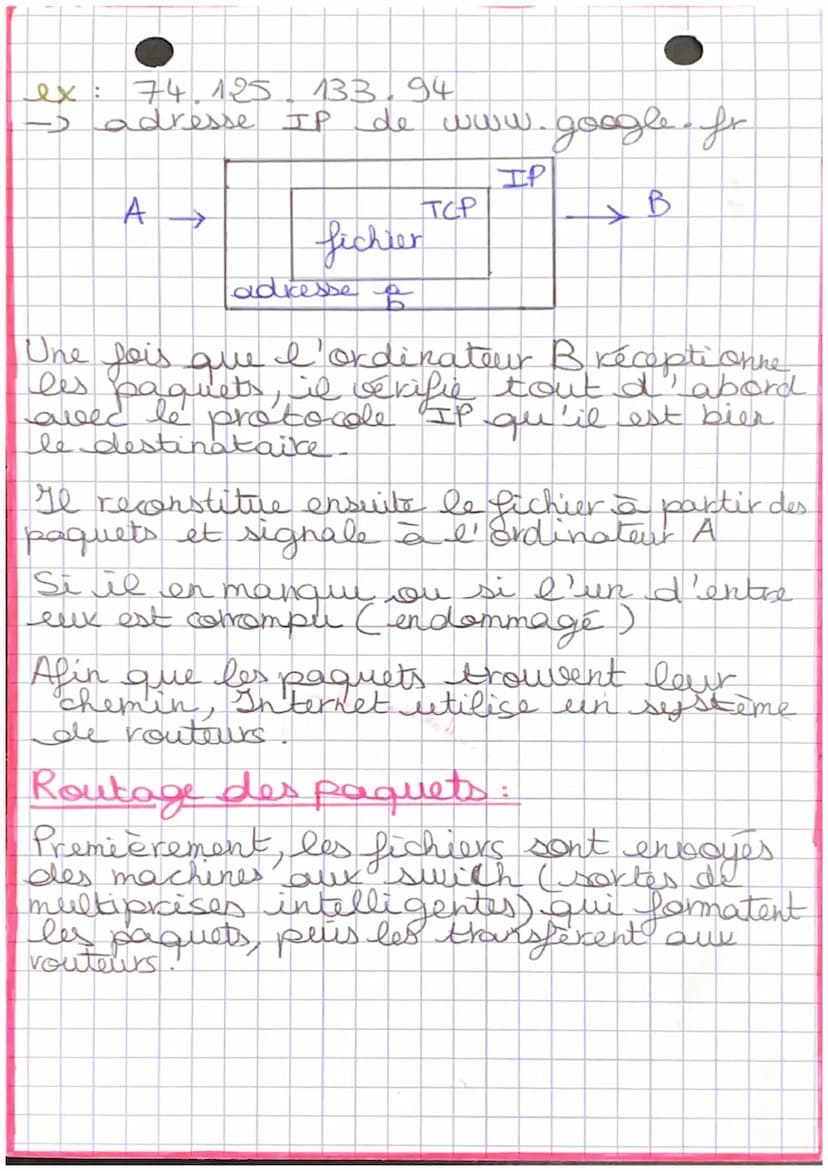 ex : 74.125.133.94
→ adresse IP de www.google.fr
IP
A → TCP → B
fichier
adresse a/b
Une fois que l'ordinateur B réceptionne
les paquets, il vérifie tout d'abord
avec le protocole IP qu'il est bien
le destinataire.
Il reconstitue ensuite le fichier à partir des
paquets et signale à l'ordinateur A
Si il en manque ou si l'un d'entre
eux est corrompu (endommagé)
Afin que les paquets trouvent leur
chemin, Internet utilise un système
de routeurs.
Routage des paquets :
Premièrement, les fichiers sont envoyés
des machines aux swich (sortes de
multiprises intelligentes) qui formatent
les paquets, puis les transfèrent aux
routeurs.